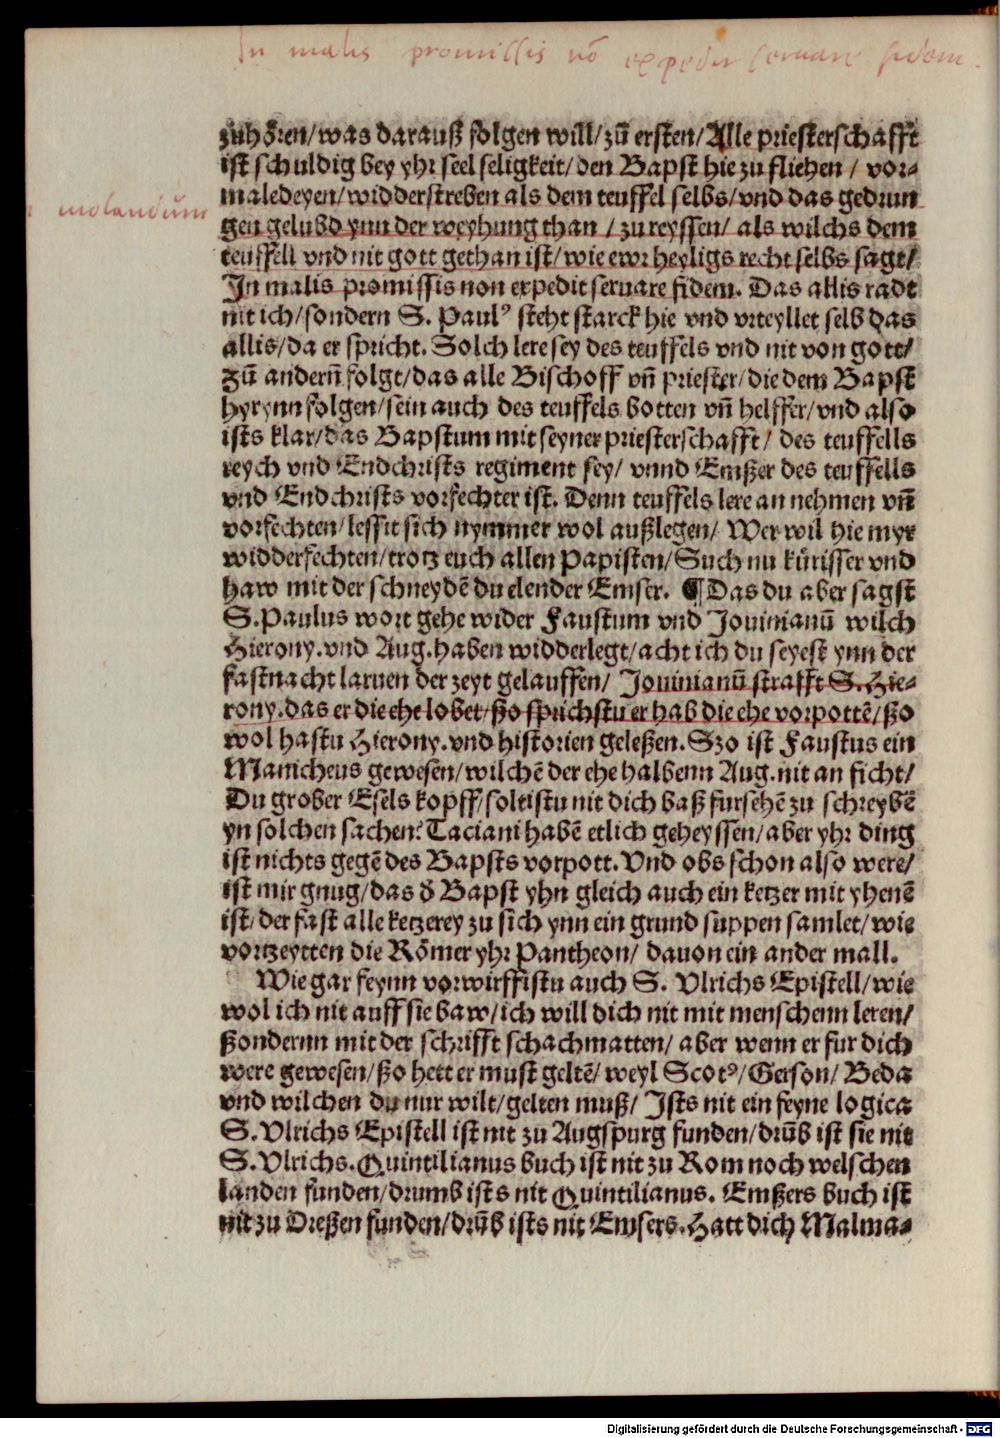 In malis promissis nō expedit seruare fidem.
zuhören/was darauß folgen will/zū ersten/Alle priesterschafft
ist schuldig bey yhr seel seligkeit/den Bapst hie zu fliehen / vor-
maledeyen/widderstreben als dem teuffel selbs/vnd das gedrun
molandūm
gen gelubd ynn der weyhung than / zu reyssen/ als wilchs dem
teuffell vnd nit gott gethan ist/wie ewr heyligs recht selbs sagt/
In malis promissis non expedit seruare fidem. Das allis radt
nit ich/sondern S. Paulꝰ steht starck hie vnd vrteyllet selb das
allis/da er spricht. Solch lere sey des teuffels vnd nit von gott/
Zū andern̄ folgt/das alle Bischoff vn̄ priester/die dem Bapst
hyrynn folgen/sein auch des teuffels botten vn̄ helffer/vnd also
ists klar/das Bapstum mit seyner priesterschafft/ des teuffells
reych vnd Endchrists regiment sey/ vnnd Emßer des teuffells
vnd Endchrists vorfechter ist. Denn teuffels lere an nehmen vn̄
vorfechten/lessit sich nymmer wol außlegen/ Wer wil hie myr
widderfechten/trotz euch allen Papisten/Such nu kürisser vnd
haw mit der schneydē du elender Emser. ¶ Das du aber sagst
S.Paulus wort gehe wider Faustum vnd Jouinianū wilch
Hierony.vnd Aug.haben widderlegt/acht ich du seyest ynn der
fastnacht laruen der zeyt gelauffen/ Jouinianū strafft S.Hie-
rony.das er die ehe lobet/ßo sprichstu er hab die ehe vorpottē/ßo
wol hastu Hierony.vnd historien geleßen. Szo ist Faustus ein
Manicheus gewesen/wilchē der ehe halbenn Aug.nit an ficht/
Du grober Esels kopff/soltistu nit dich baß fursehē zu schreybē
yn solchen sachen? Taciani habē etlich geheyssen/aber yhr ding
ist nichts gegē des Bapsts vorpott. Vnd obs schon also were/
ist mir gnug/das ð Bapst yhn gleich auch ein ketzer mit yhenē
ist/der fast alle ketzerey zu sich ynn ein grund suppen samlet/wie
vortzeytten die Römer yhr Pantheon/ dauon ein ander mall.
Wie gar feynn vorwirffistu auch S. Vlrichs Epistell/wie
wol ich nit auff sie baw/ich will dich nit mit menschenn leren/
ßondernn mit der schrifft schachmatten/ aber wenn er fur dich
were gewesen/ßo hett er must geltē/weyl Scotꝰ/Gerson/Beda
vnd wilchen du nur wilt/gelten muß/ Ists nit ein feyne logica
S.Vlrichs Epistell ist nit zu Augspurg funden/drūb ist sie nit
S.Vlrichs.Quintilianus buch ist nit zu Rom noch welschen
landen funden/drumb ists nit Quintilianus. Emßers buch ist
nit zu Dreßen funden/drūb ists nit Emsers.Hatt dich Malma-
Digitalisierung gefördert durch die Deutsche Forschungsgemeinschaft - DFG